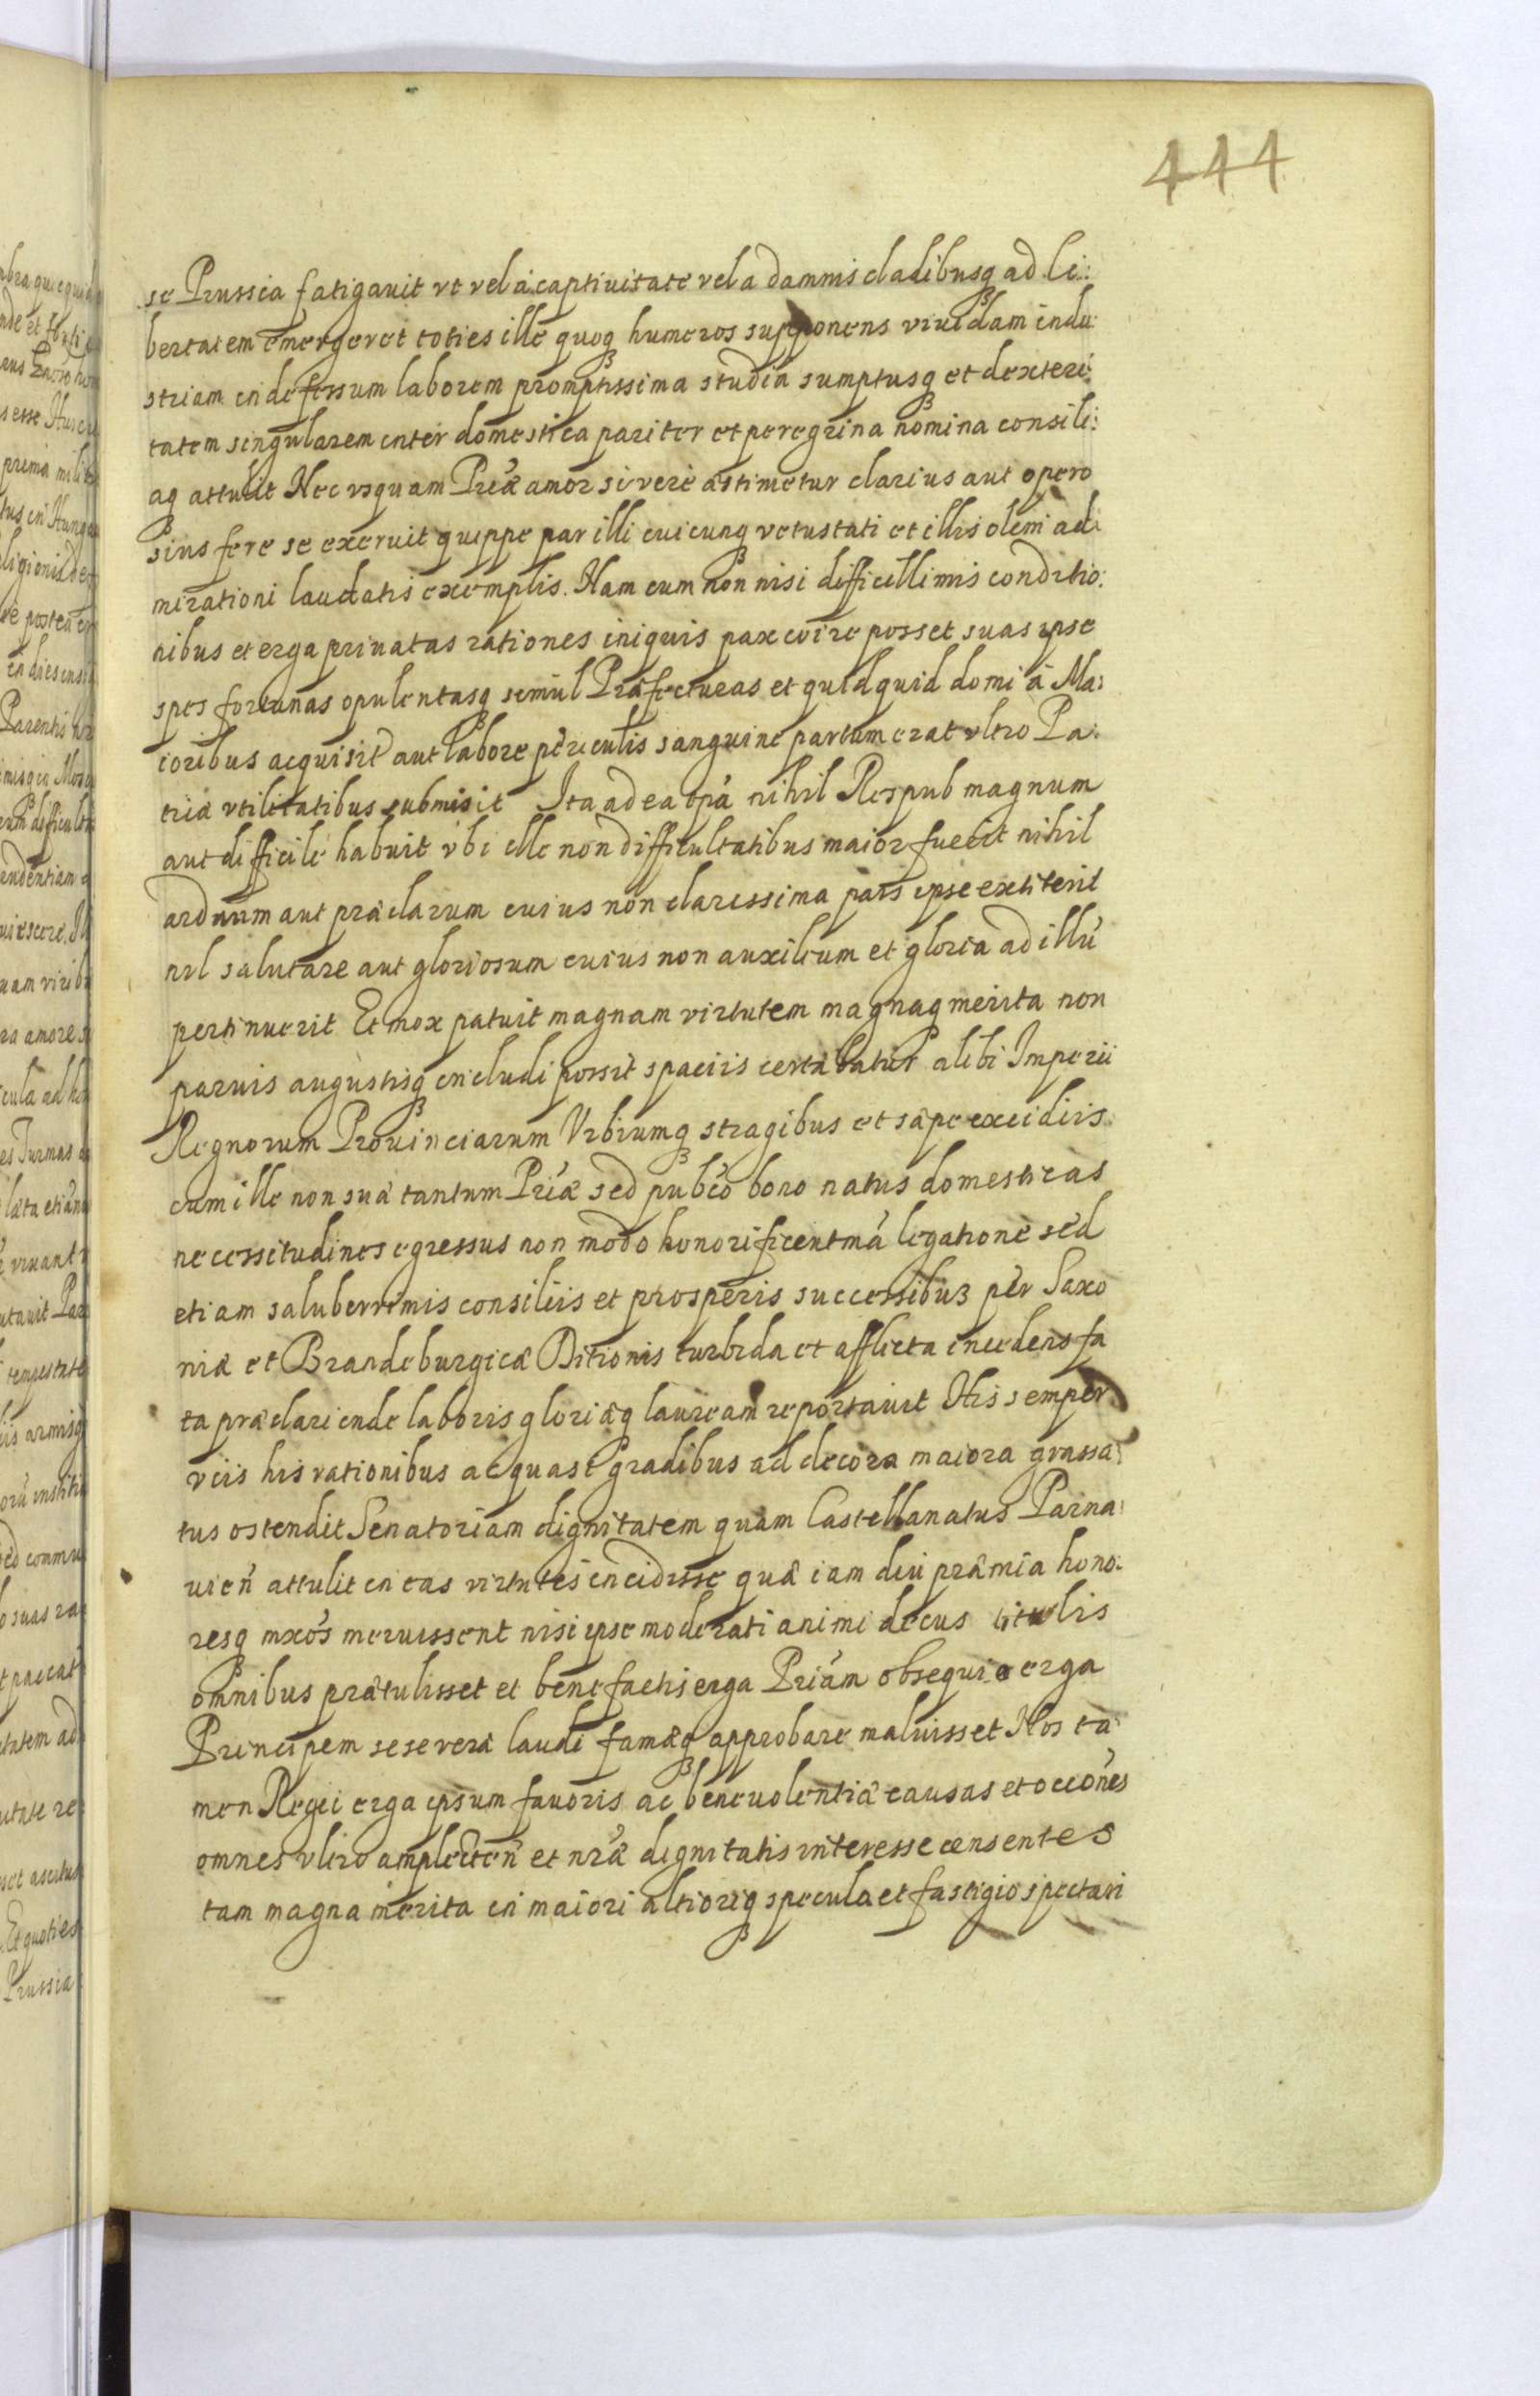 444
se Prussia fatigavit vt vel a captiuitate vel a damnis cladibusq3 ad li:
bertatem emergeret toties ille quoq3 humeros supponens viuidam indu
striam indefessum laborem promptissima studia sumptusq3 et dexteri:
tatem singularem inter domestica pariter et peregrina nomina consili:
aq3 attulit Nec vsquam Priæ amor si vere æstimetur clarius aut opero
sius fere se exeruit quippe par illi cuicunq3 vetustati et illis olim ad:
mirationi laudatis exemplis. Nam cum non nisi difficillimis conditio:
nibus et erga priuatas rationes iniquis pax coire posset suas ipse
spes fortunas opulentasq3 simul Præfecturas et quidquid domi á Ma:
ioribus acquisit aut labore periculis sanguine partum erat vltro Pa:
triæ vtilitatibus submisit Ita ad ea tpa nihil Respub magnum
aut difficile habuit vbi ille non difficultatibus maior fuerit nihil
arduum aut præclarum cuius non clarissima pars ipse extiterit
nil salutare aut gloriosum cuius non auxilium et gloria ad illū
pertinuerit Et mox patuit magnam virtutem magnaq merita non
paruis angustisq3 includi possit spaciis certabatur alibi Imperii
Regnorum Prouinciarum Vrbiumq3 stragibus et sæpe excidiis
cum ille non suæ tantum Priæ sed pubco bono natus domesticas
necessitudines egressus non modo honorificentmá legatione sed
etiam saluberrimis consiliis et prosperis successibu3 per Saxo
niæ et Brandeburgicæ Ditionis turbida et afflicta incedens fa
ta præclari inde laboris gloriæq lauream reportauit His semper
viis his rationibus ac quasi gradibus ad decora maiora grassa:
tus ostendit Senatoriam dignitatem quam Castellanatus Parna:
uień attulit in eas virtutes incidisse quæ iam diu præmia hono:
resq mxos meruissent nisi ipse moderati animi decus titulis
omnibus prætulisset et benefactis erga Priam obsequio erga
Principem sese veræ laudi famæq3 approbare maluisset Nos ta
men Regii erga ipsum fauoris ac beneuolentiæ causas et occōnes
omnes vltro amplecteń et nræ dignitatis interesse censentes
tam magna merita in maiori altioriq3 specula et fastigio spectari